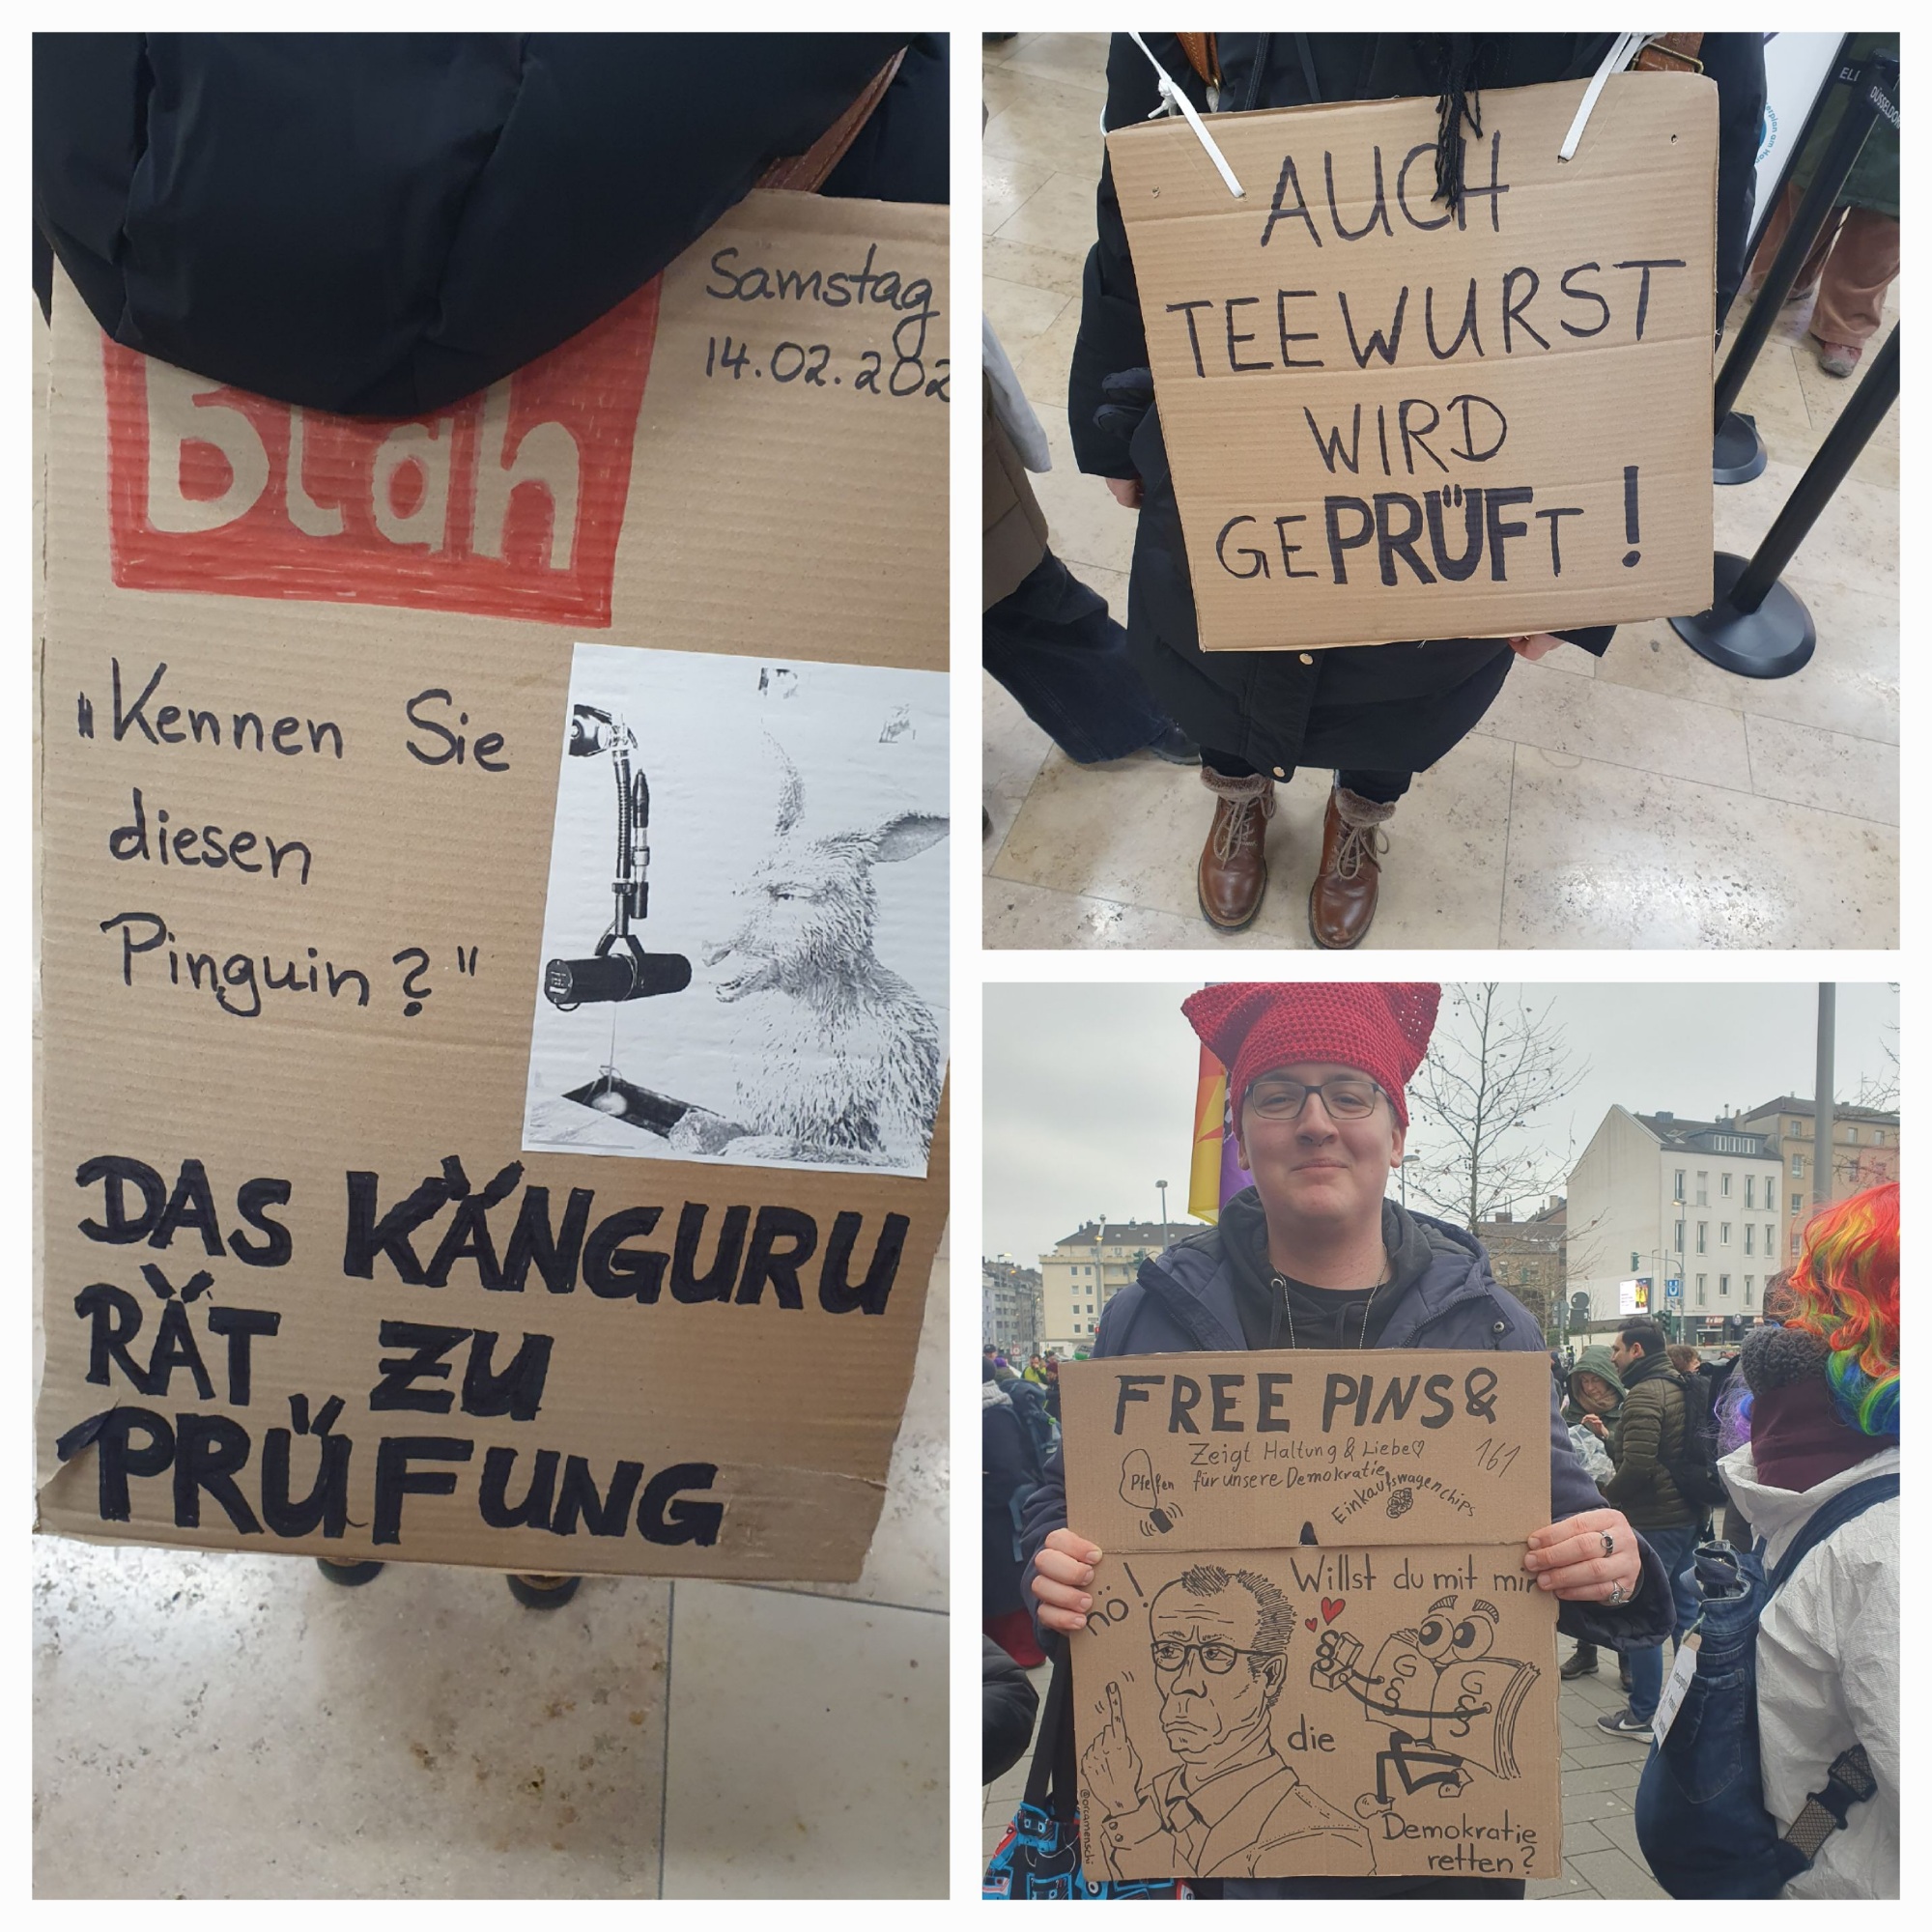 Blah
Samstag
14.02.202
"Kennen Sie
diesen
Pinguin?"
DAS KÄNGURU
RÄT ZU
PRÜFUNG
AUCH
TEEWURST
WIRD
GEPRÜFT!
ELI
DÜSSELDOR
FREE PINS &
Zeigt Haltung & Liebe♡
für unsere Demokratie
161
Pfeifen
Einkaufswagenchips
nö!
Willst du mit mir
GG
GG
die
Demokratie
retten?
@orcamenschi